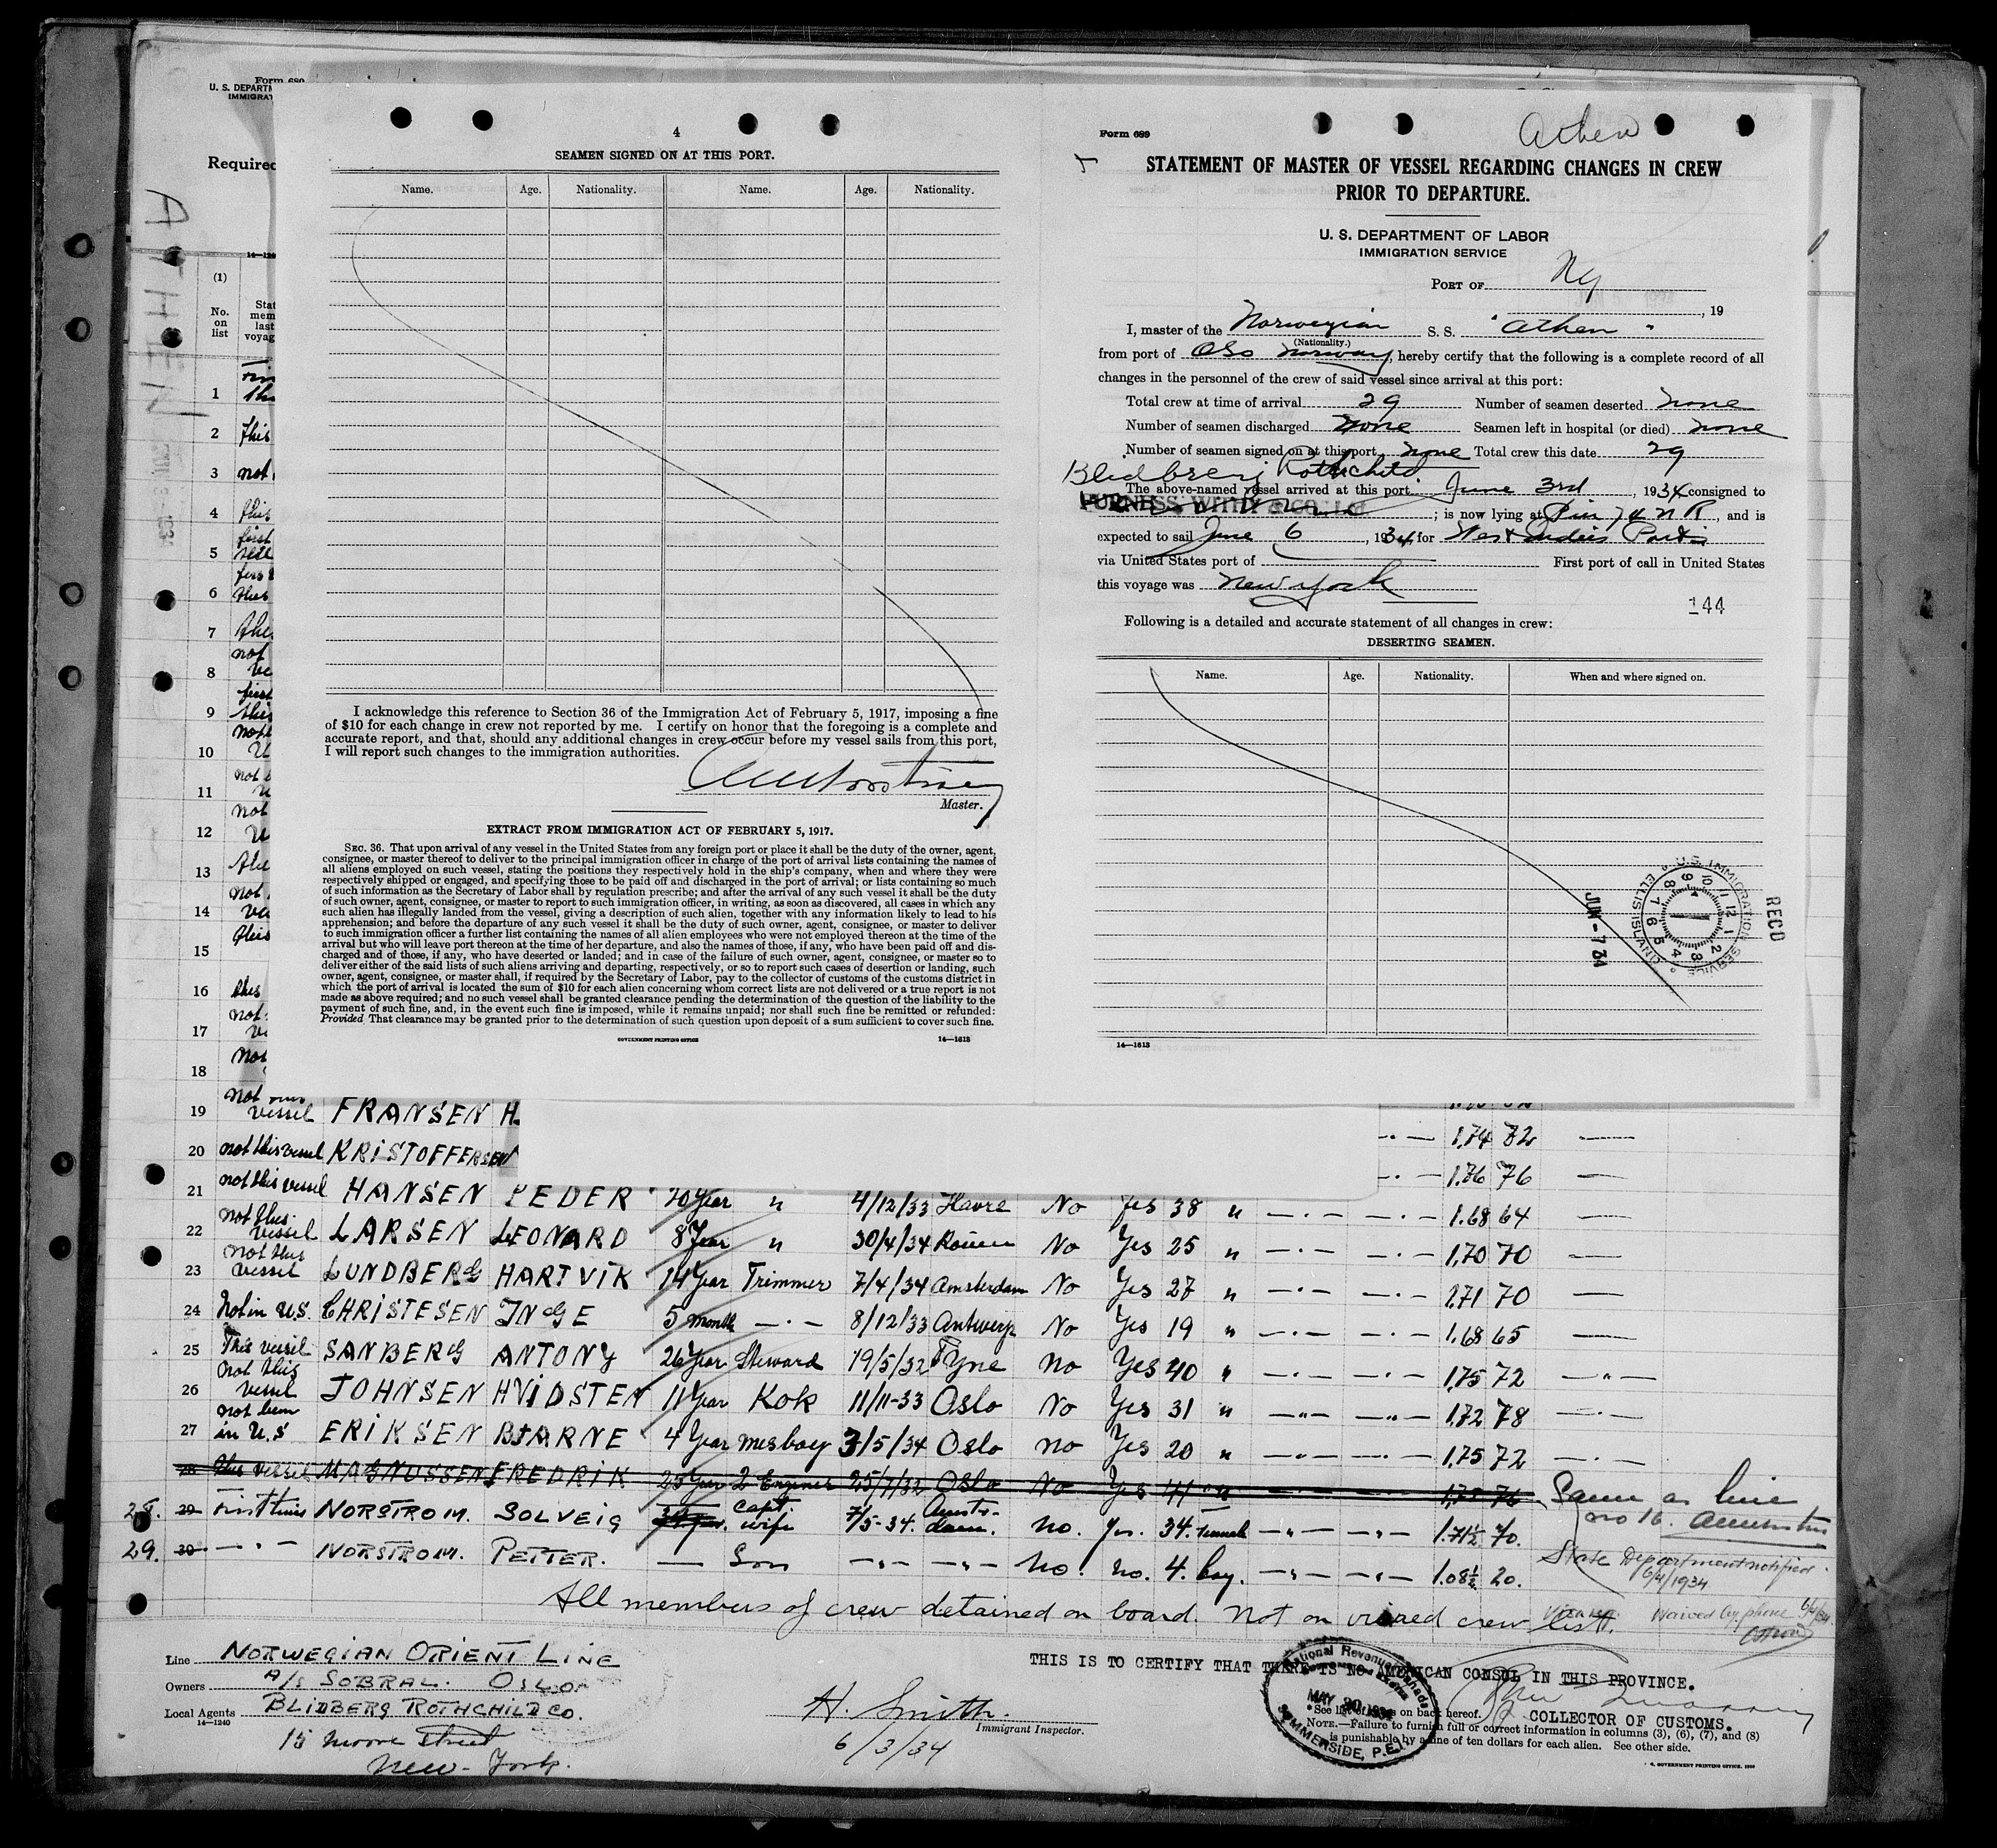 Form 680
U. S. DEPARTM
IMMIGRAT
Required
ATHEN
14—1240
(1)
No. on list
Stat
mem
last
voyag
4
SEAMEN SIGNED ON AT THIS PORT.
Name. Age. Nationality. Name. Age. Nationality.
I acknowledge this reference to Section 36 of the Immigration Act of February 5, 1917, imposing a fine
of $10 for each change in crew not reported by me. I certify on honor that the foregoing is a complete and
accurate report, and that, should any additional changes in crew occur before my vessel sails from this port,
I will report such changes to the immigration authorities.
Master.
EXTRACT FROM IMMIGRATION ACT OF FEBRUARY 5, 1917.
SEC. 36. That upon arrival of any vessel in the United States from any foreign port or place it shall be the duty of the owner, agent,
consignee, or master thereof to deliver to the principal immigration officer in charge of the port of arrival lists containing the names of
all aliens employed on such vessel, stating the positions they respectively hold in the ship's company, when and where they were
respectively shipped or engaged, and specifying those to be paid off and discharged in the port of arrival; or lists containing so much
of such information as the Secretary of Labor shall by regulation prescribe; and after the arrival of any such vessel it shall be the duty
of such owner, agent, consignee, or master to report to such immigration officer, in writing, as soon as discovered, all cases in which any
such alien has illegally landed from the vessel, giving a description of such alien, together with any information likely to lead to his
apprehension; and before the departure of any such vessel it shall be the duty of such owner, agent, consignee, or master to deliver
to such immigration officer a further list containing the names of all alien employees who were not employed thereon at the time of the
arrival but who will leave port thereon at the time of her departure, and also the names of those, if any, who have been paid off and dis-
charged and of those, if any, who have deserted or landed; and in case of the failure of such owner, agent, consignee, or master so to
deliver either of the said lists of such aliens arriving and departing, respectively, or so to report such cases of desertion or landing, such
owner, agent, consignee, or master shall, if required by the Secretary of Labor, pay to the collector of customs of the customs district in
which the port of arrival is located the sum of $10 for each alien concerning whom correct lists are not delivered or a true report is not
made as above required; and no such vessel shall be granted clearance pending the determination of the question of the liability to the
payment of such fine, and, in the event such fine is imposed, while it remains unpaid; nor shall such fine be remitted or refunded:
Provided That clearance may be granted prior to the determination of such question upon deposit of a sum sufficient to cover such fine.
GOVERNMENT PRINTING OFFICE 14—1613
Form 689
Athen
STATEMENT OF MASTER OF VESSEL REGARDING CHANGES IN CREW
PRIOR TO DEPARTURE.
U. S. DEPARTMENT OF LABOR
IMMIGRATION SERVICE
PORT OF Ny
, 19
I, master of the Norwegian S. S. "Athen"
(Nationality.)
from port of Oslo Norway, hereby certify that the following is a complete record of all
changes in the personnel of the crew of said vessel since arrival at this port:
Total crew at time of arrival 29 Number of seamen deserted none
Number of seamen discharged none Seamen left in hospital (or died) none
Number of seamen signed on at this port none Total crew this date 29
Blidberg Rothchild
The above-named vessel arrived at this port June 3rd, 1934 consigned to
FURNESS WITHY & CO. Ltd ; is now lying at Pier 74 N R, and is
expected to sail June 6, 1934, for West Indies Ports
via United States port of First port of call in United States
this voyage was New York
144
Following is a detailed and accurate statement of all changes in crew:
DESERTING SEAMEN.
Name. Age. Nationality. When and where signed on.
U.S. IMMIGRATION SERVICE ELLIS ISLAND
RECD
JUN -7 34
14—1613
1
2 this
3 not
4 this
5 first
6 first this
7 this
8 not ve
9 first this
10 not
11 not
12 not
13 this
14 not ve
15 this
16 this
17 not ve
18 not
19 not this vessel FRANSEN H
20 not this vessel KRISTOFFERSEN 1.74 82
1.76 76
21 not this vessel HANSEN PEDER 20 Year " 4/12/33 Havre No Yes 38 " 1.68 64
22 not this vessel LARSEN LEONARD 8 Year " 30/4/34 Rouen No Yes 25 " 1,70 70
23 not this vessel LUNDBERG HARTVIK 14 Year Trimmer 7/4/34 Amsterdam No Yes 27 " 1,71 70
24 Not in U.S. CHRISTESEN INGE 5 month —·— 8/12/33 Antwerp No Yes 19 " 1.68 65
25 This vessel SANBERG ANTONY 26 Year Steward 19/5/32 Tyne No Yes 40 " 1,75 72
26 not this vessel JOHNSEN HVIDSTEN 11 Year Kok 11/11-33 Oslo No Yes 31 " 1,72 78
27 not been in U.S ERIKSEN BJARNE 4 Year mesboy 3/5/34 Oslo no Yes 20 " 1.75 72
28 this vessel MAGNUSSEN FREDRIK 25 Year 2 Enginer 25/7/32 Oslo No Yes 41 " 1,75 76 Same as line no 16.
28. 29 First time NORSTROM. SOLVEIG capt. wife 7/5-34. Amsterdam. no. yes. 34. female 1.71½ 70.
29. 30 —·— NORSTROM. PETTER. — Son —·— —·— No. no. 4. boy. 1.08½ 20.
State Department notified 6/4/1934
All members of crew detained on board. Not on visaed crew list.
Waived by phone 6/4/34
Line NORWEGIAN ORIENT LINE
Owners A/S SOBRAL. OSLO
Local Agents BLIDBERG ROTHCHILD CO.
14—1240
15 Moore Street
New-York.
H. Smith.
Immigrant Inspector.
6/3/34
THIS IS TO CERTIFY THAT THERE IS NO AMERICAN CONSUL IN THIS PROVINCE.
COLLECTOR OF CUSTOMS.
National Revenue Canada
MAY 30 1934
SUMMERSIDE, P.E.I.
*See list of races on back hereof.
NOTE.—Failure to furnish full or correct information in columns (3), (6), (7), and (8)
is punishable by a fine of ten dollars for each alien. See other side.
GOVERNMENT PRINTING OFFICE